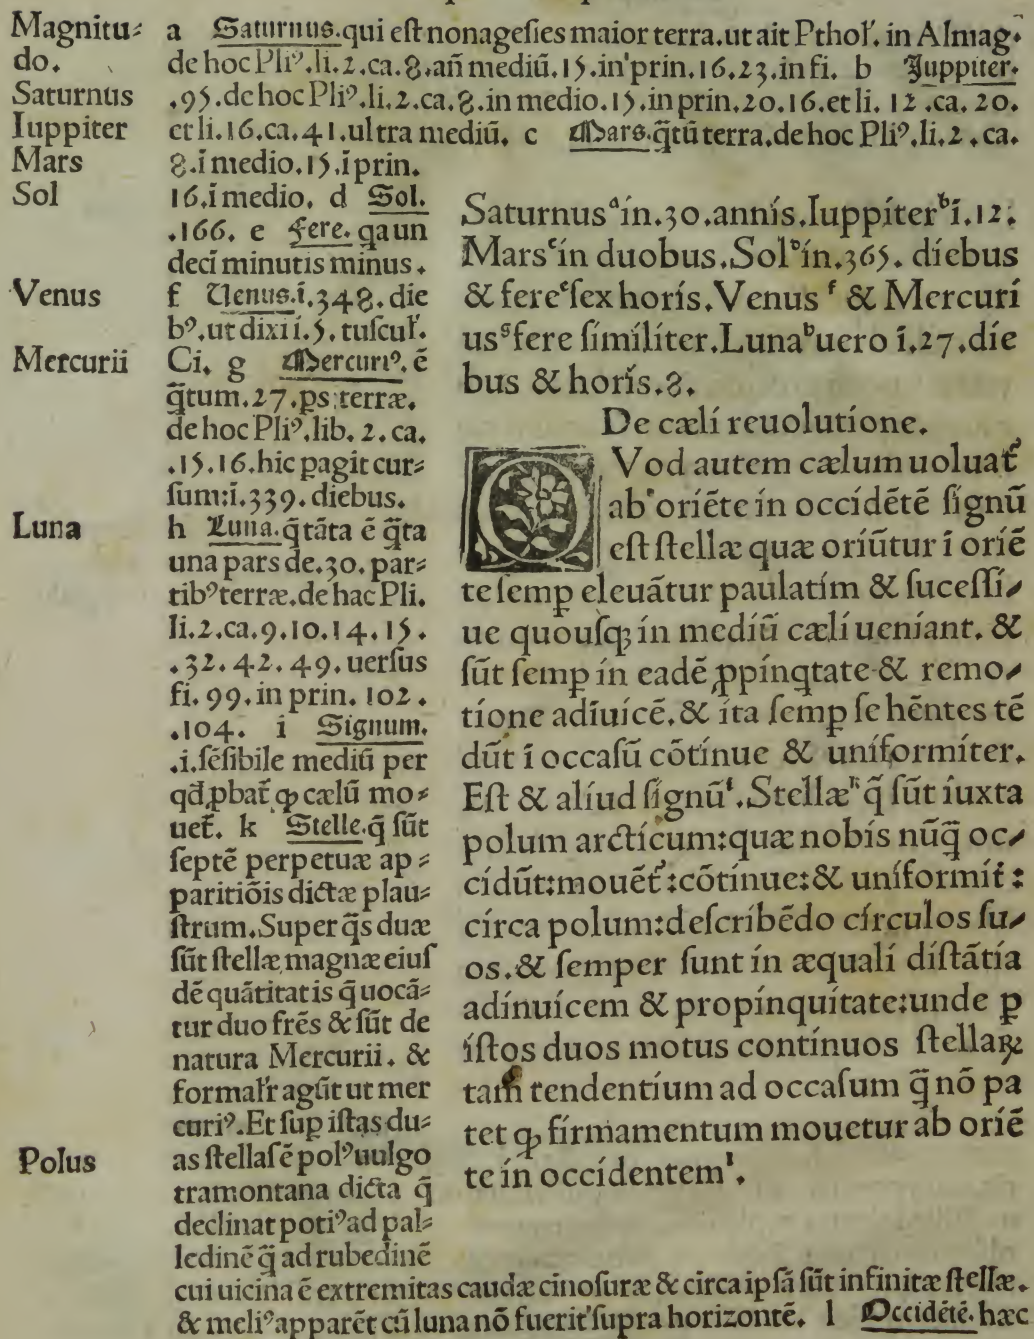 Magnitu⸗
do.
Saturnus
Iuppiter
Mars
Sol
Venus
Mercurii
Luna
Polus
a Saturnus.qui eſt nonageſies maior terra.ut ait Pthoľ. in Almag.
de hoc Pliꝰ.li.2.ca.8.añ mediū.15.in prin.16.23.in fi. b Juppiter.
.95.de hoc Pliꝰ.li.2.ca.8.in medio.15.in prin.20.16.et li. 12.ca. 20.
et li.16.ca.41.ultra mediū. c Mars.q̄tū terra.de hoc Pliꝰ.li.2.ca.
8.ī medio.15.ī prin.
16.ī medio. d Sol.
.166. e fere. qa un
deci minutis minus.
f Venus.ī.348.die
bꝰ.ut dixi ī.5.tuſcuľ.
Ci. g Mercuriꝰ.ē
q̄tum.27.ps terræ.
de hoc Pliꝰ.lib. 2.ca.
.15.16.hic pagit cur⸗
ſum:ī.339.diebus.
h Luna.q̄ tāta ē q̄ta
una pars de.30.par⸗
tibꝰ terræ.de hac Pli.
li.2.ca.9.10.14.15.
.32.42.49.uerſus
fi. 99.in prin. 102.
.104. i Signum.
.i.ſēſibile mediū per
qď ꝓbať ꝙ cælū mo⸗
ueť. k Stelle.q̄ ſūt
ſeptē perpetuæ ap⸗
paritiōis dictæ plau⸗
ſtrum.Super q̄s duæ
ſūt ſtellæ magnæ eiuſ
dē quātitatis q̄ uocā⸗
tur duo frēs & ſūt de
natura Mercurii. &
formaľr agūt ut mer
curiꝰ.Et ſup iſtas du⸗
as ſtellaſ ē polꝰ uulgo
tramontana dicta q̄
declinat potiꝰ ad pal⸗
ledinē q̄ ad rubedinē
cui uicina ē extremitas caudæ cinoſuræ & circa ipſā ſūt infinitæ ſtellæ.
& meliꝰ apparēt cū luna nō fuerit ſupra horizontē. l Occidētē. hæc
Saturnus ᵃ in.30.annis.Iuppiter ᵇ ī.12.
Mars ᶜ in duobus.Sol ᵈ in.365. diebus
& fere ᵉ ſex horis.Venus ᶠ & Mercuri
us ᵍ fere ſimiliter.Luna ʰ uero ī.27.die
bus & horis.8.
De cæli reuolutione.
QVod autem cælum uoluať
ab oriēte in occidētē ſignū ⁱ
eſt ſtellæ quæ oriūtur ī oriē
te ſemp̱ eleuātur paulatim & ſuceſſi⸗
ue quouſqꝫ in mediū cæli ueniant. &
ſūt ſemp̱ in eadē ꝓpinqtate & remo⸗
tione adiuicē.& ita ſemp̱ ſe hēntes tē
dūt ī occaſū cōtinue & uniformiter.
Eſt & aliud ſignū ⁱ.Stellæ ᵏ q̄ ſūt iuxta
polum arcticum:quæ nobis nūq̄ oc⸗
cidūt:mouēť:cōtinue:& uniformiť:
circa polum:deſcribēdo circulos ſu⸗
os.& ſemper ſunt in æquali diſtātia
adinuicem & propinquitate:unde ꝑ
iſtos duos motus continuos ſtellaꝝ
tam tendentium ad occaſum q̄ nō pa
tet ꝙ firmamentum mouetur ab oriē
te in occidentem ˡ.